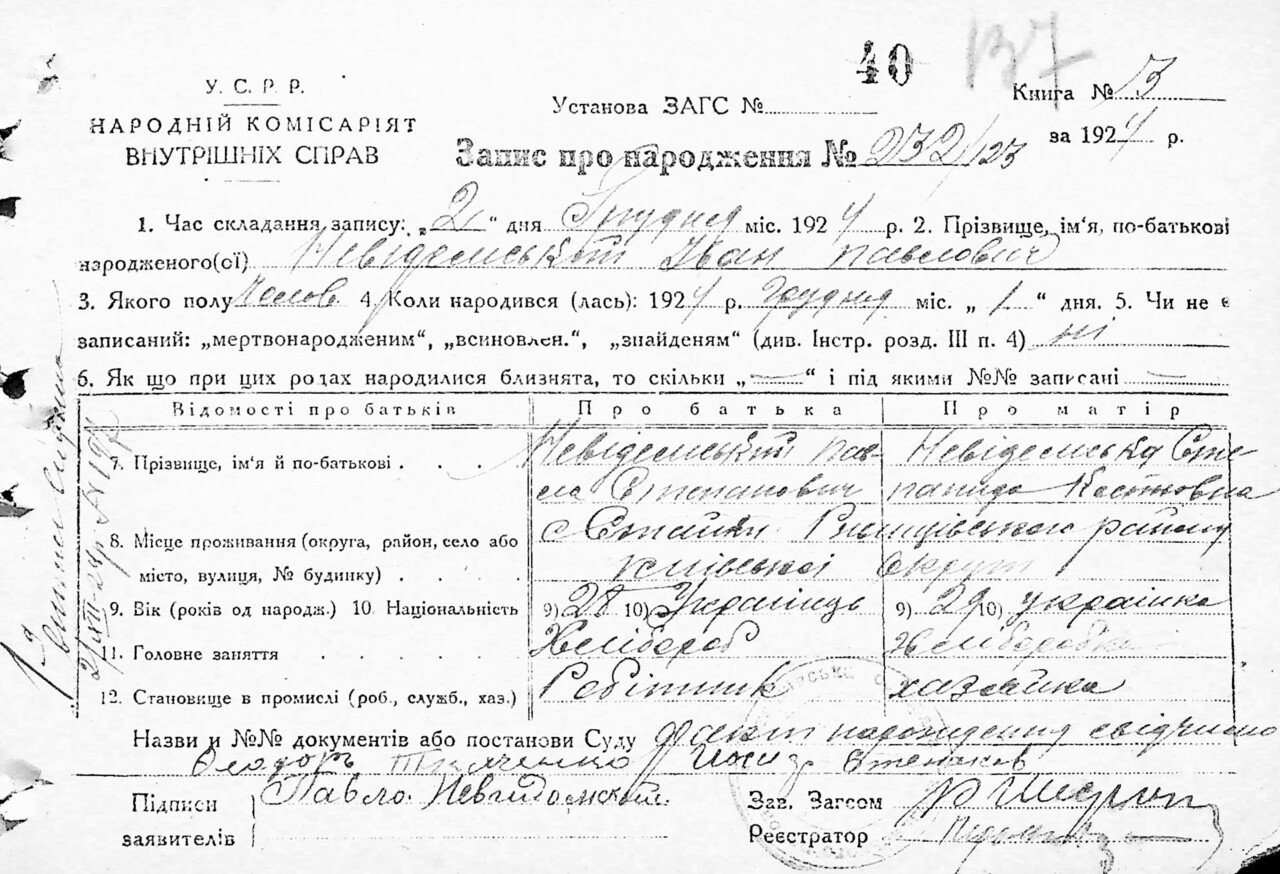 40 137
У. С. Р. Р.
НАРОДНІЙ КОМІСАРІЯТ
ВНУТРІШНІХ СПРАВ
Установа ЗАГС №
Книга № 13
за 1924 р.
Запис про народження № 232/123
1. Час складання запису: „2" дня Грудня міс. 1924 р. 2. Прізвище, ім'я, по-батькові
народженого(ої) Невідемський Іван Павлович
3. Якого полу Челов. 4. Коли народився (лась): 1924 р. Грудня міс. „1" дня. 5. Чи не є
записаний: „мертвонародженим", „всиновлен.", „знайденям" (див. Інстр. розд. III п. 4) ні
6. Як що при цих родах народилися близнята, то скільки „—" і під якими №№ записані —
Відомості про батьків Про батька Про матір
7. Прізвище, ім'я й по-батькові . . . Невідемський Пав- Невідемська Сте-
ла Степанович панида
8. Місце проживання (округа, район, село або с. Стайки Ржищівського району
місто, вулиця, № будинку) . . . . Київської Округи
9. Вік (років од народж.) 10. Національність 9) 28 10) Українець 9) 29 10) українка
11. Головне заняття . . . . . Хлібороб Хліборобка
12. Становище в промислі (роб., служб., хаз.) Робітник хазяйка
Назви и №№ документів або постанови Суду факт народження свідчили
Ткаченко
Підписи Павло Невидомский
заявителів
Зав. Загсом
Реєстратор